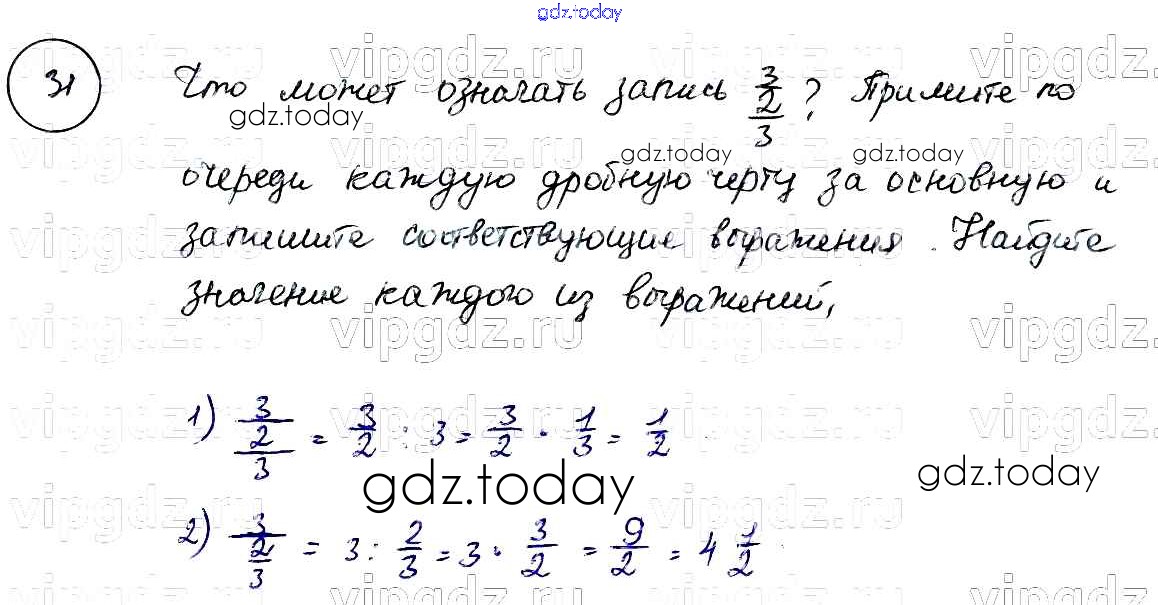 gdz.today
31 Что может означать запись 3/2/3? Примите по
очереди каждую дробную черту за основную и
запишите соответствующие выражения. Найдите
значение каждого из выражений,
1) 3/2/3 = 3/2 : 3 = 3/2 · 1/3 = 1/2
2) 3/2/3 = 3 : 2/3 = 3 · 3/2 = 9/2 = 4 1/2
gdz.today
gdz.today
gdz.today
gdz.today
gdz.today
vipgdz.ru